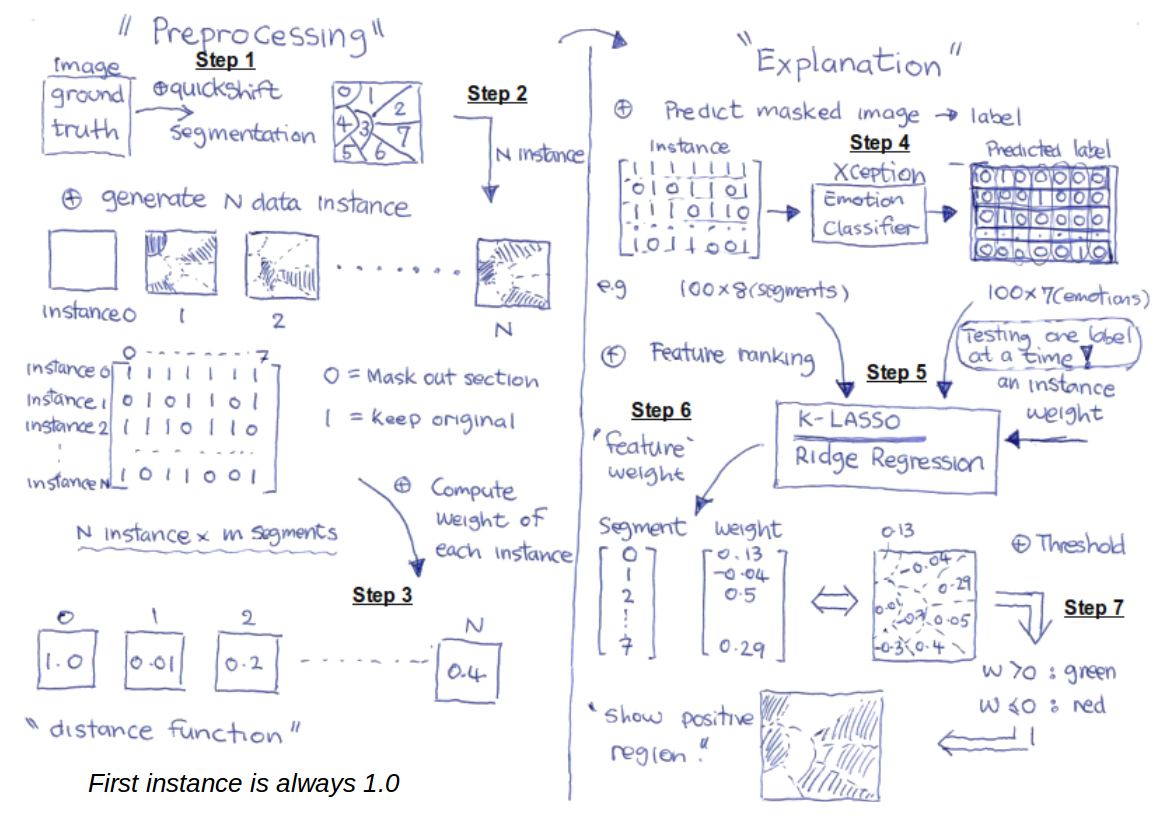 "Preprocessing"
Step 1
Image
ground
truth
⊕ quickshift
segmentation
0 1 2
4 3 7
5 6
Step 2
N instance
⊕ generate N data instance
instance0 1 2 N
0 - - - - - - - 7
instance 0 1 1 1 1 1 1 1
instance 1 0 1 0 1 1 0 1
instance 2 1 1 1 0 1 1 0
instance N 1 0 1 1 0 0 1
0 = Mask out section
1 = Keep original
N instance x m segments
⊕ Compute
weight of
each instance
Step 3
0 1 2 N
1.0 0.01 0.2 0.4
"distance function"
First instance is always 1.0
"Explanation"
⊕ Predict masked image → label
Step 4
Instance
1 1 1 1 1 1 1
0 1 0 1 1 0 1
1 1 1 0 1 1 0
1 0 1 1 0 0 1
Xception
Emotion
Classifier
Predicted label
0 1 0 0 0 0 0
0 0 0 1 0 0 0
0 1 0 0 0 0 0
0 0 0 0 0 1 0
e.g 100x8(segments) 100x7(emotions)
Testing one label
at a time!
⊕ Feature ranking
Step 5
an instance
weight
K-LASSO
Ridge Regression
Step 6
"feature"
weight
Segment weight
0 0.13
1 -0.04
2 0.5
7 0.29
0.13
-0.04
0.29
0.05
-0.3 0.4
⊕ Threshold
Step 7
w >0 : green
w ≤0 : red
"show positive
region."